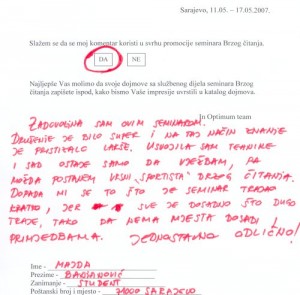 Sarajevo, 11.05. – 17.05.2007.
Slažem se da se moj komentar koristi u svrhu promocije seminara Brzog čitanja.
DA NE
Najljepše Vas molimo da svoje dojmove sa službenog dijela seminara Brzog
čitanja zapišete ispod, kako bismo Vaše impresije uvrstili u katalog dojmova.
In Optimum team
ZADOVOLJNA SAM OVIM SEMINAROM.
DRUŽENJE JE BILO SUPER I NA TAJ NAČIN ZNANJE
JE PRISTICALO LAKŠE. USVOJILA SAM TEHNIKE
I SAD OSTAJE SAMO DA VJEŽBAM, PA
MOŽDA POSTANEM VRSNI "SPORTISTA" BRZOG ČITANJA.
DOPADA MI SE TO ŠTO JE SEMINAR TRAJAO
KRATKO, JER SVE JE DOSADNO ŠTO DUGO
TRAJE, TAKO DA NEMA MJESTA DOSADI I
PRIMJEDBAMA. JEDNOSTAVNO ODLIČNO!
Ime - MAJDA
Prezime -
Zanimanje - STUDENT
Poštanski broj i mjesto - 71000 SARAJEVO